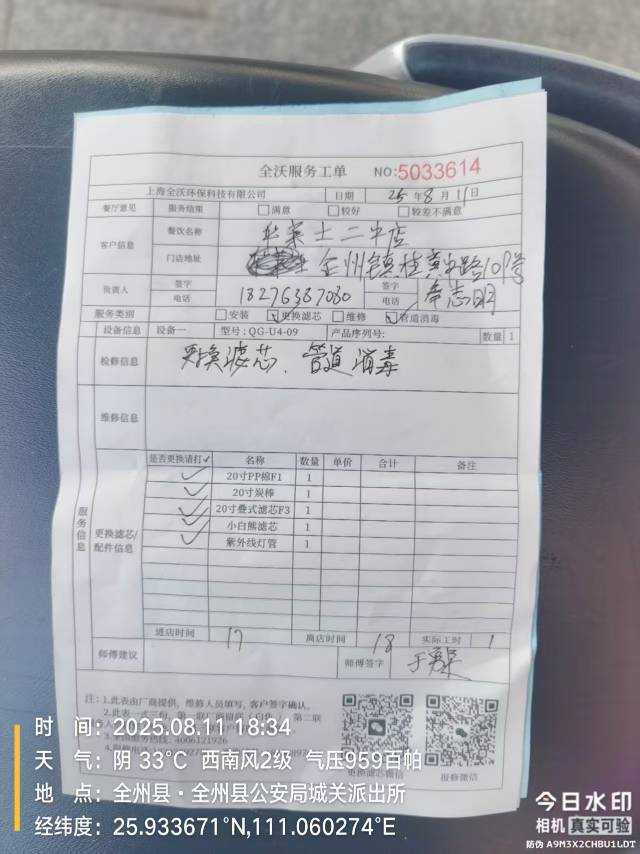 全沃服务工单 NO:5033614
上海全沃环保科技有限公司 日期 25年8月11日
餐厅意见 服务结果 满意 较好 较差不满意
客户信息 餐饮名称 华莱士二中店
门店地址 全州镇桂黄中路109号
负责人 签字 电话 18276387080 签字 电话 志明
服务类别 安装 更换滤芯 维修 管道消毒
设备信息 设备一 型号:QG-U4-09 产品序列号: 数量 1
检修信息 更换滤芯、管道消毒
维修信息
服务信息
更换滤芯/配件信息
是否更换请打✓ 名称 数量 单价 合计 备注
✓ 20寸PP棉F1 1
✓ 20寸炭棒 1
✓ 20寸叠式滤芯F3 1
✓ 小白熊滤芯 1
✓ 紫外线灯管 1
进店时间 17 离店时间 18 实际工时 1
师傅建议 师傅签字 于勇
注:1.此表由厂商提供,维修人员填写,客户签字确认。
2.此表一式
第二联
4006121926
更换滤芯微信 报修微信
时 间:2025.08.11 18:34
天 气:阴 33℃ 西南风2级 气压959百帕
地 点:全州县·全州县公安局城关派出所
经纬度:25.933671°N,111.060274°E
今日水印
相机 真实可验
防伪 A9M3X2CHBU1LDT